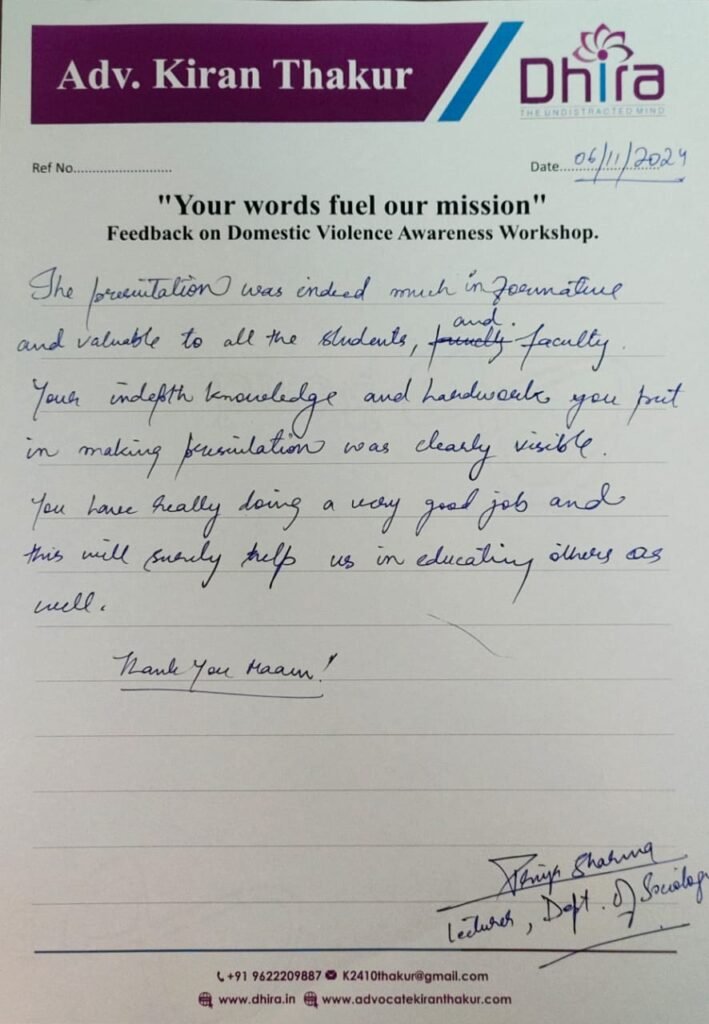 Adv. Kiran Thakur
Dhira
THE UNDISTRACTED MIND
Ref No..........................
Date...06/11/2024
"Your words fuel our mission"
Feedback on Domestic Violence Awareness Workshop.
The presentation was indeed much informative
and valuable to all the students, and faculty.
Your indepth knowledge and hardwork you put
in making presentation was clearly visible.
You have really doing a very good job and
this will surely help us in educating others as
well.
Thank You Maam!
Sharma
Lecturer, Dept. of Sociology
+91 9622209887 K2410thakur@gmail.com
www.dhira.in www.advocatekiranthakur.com